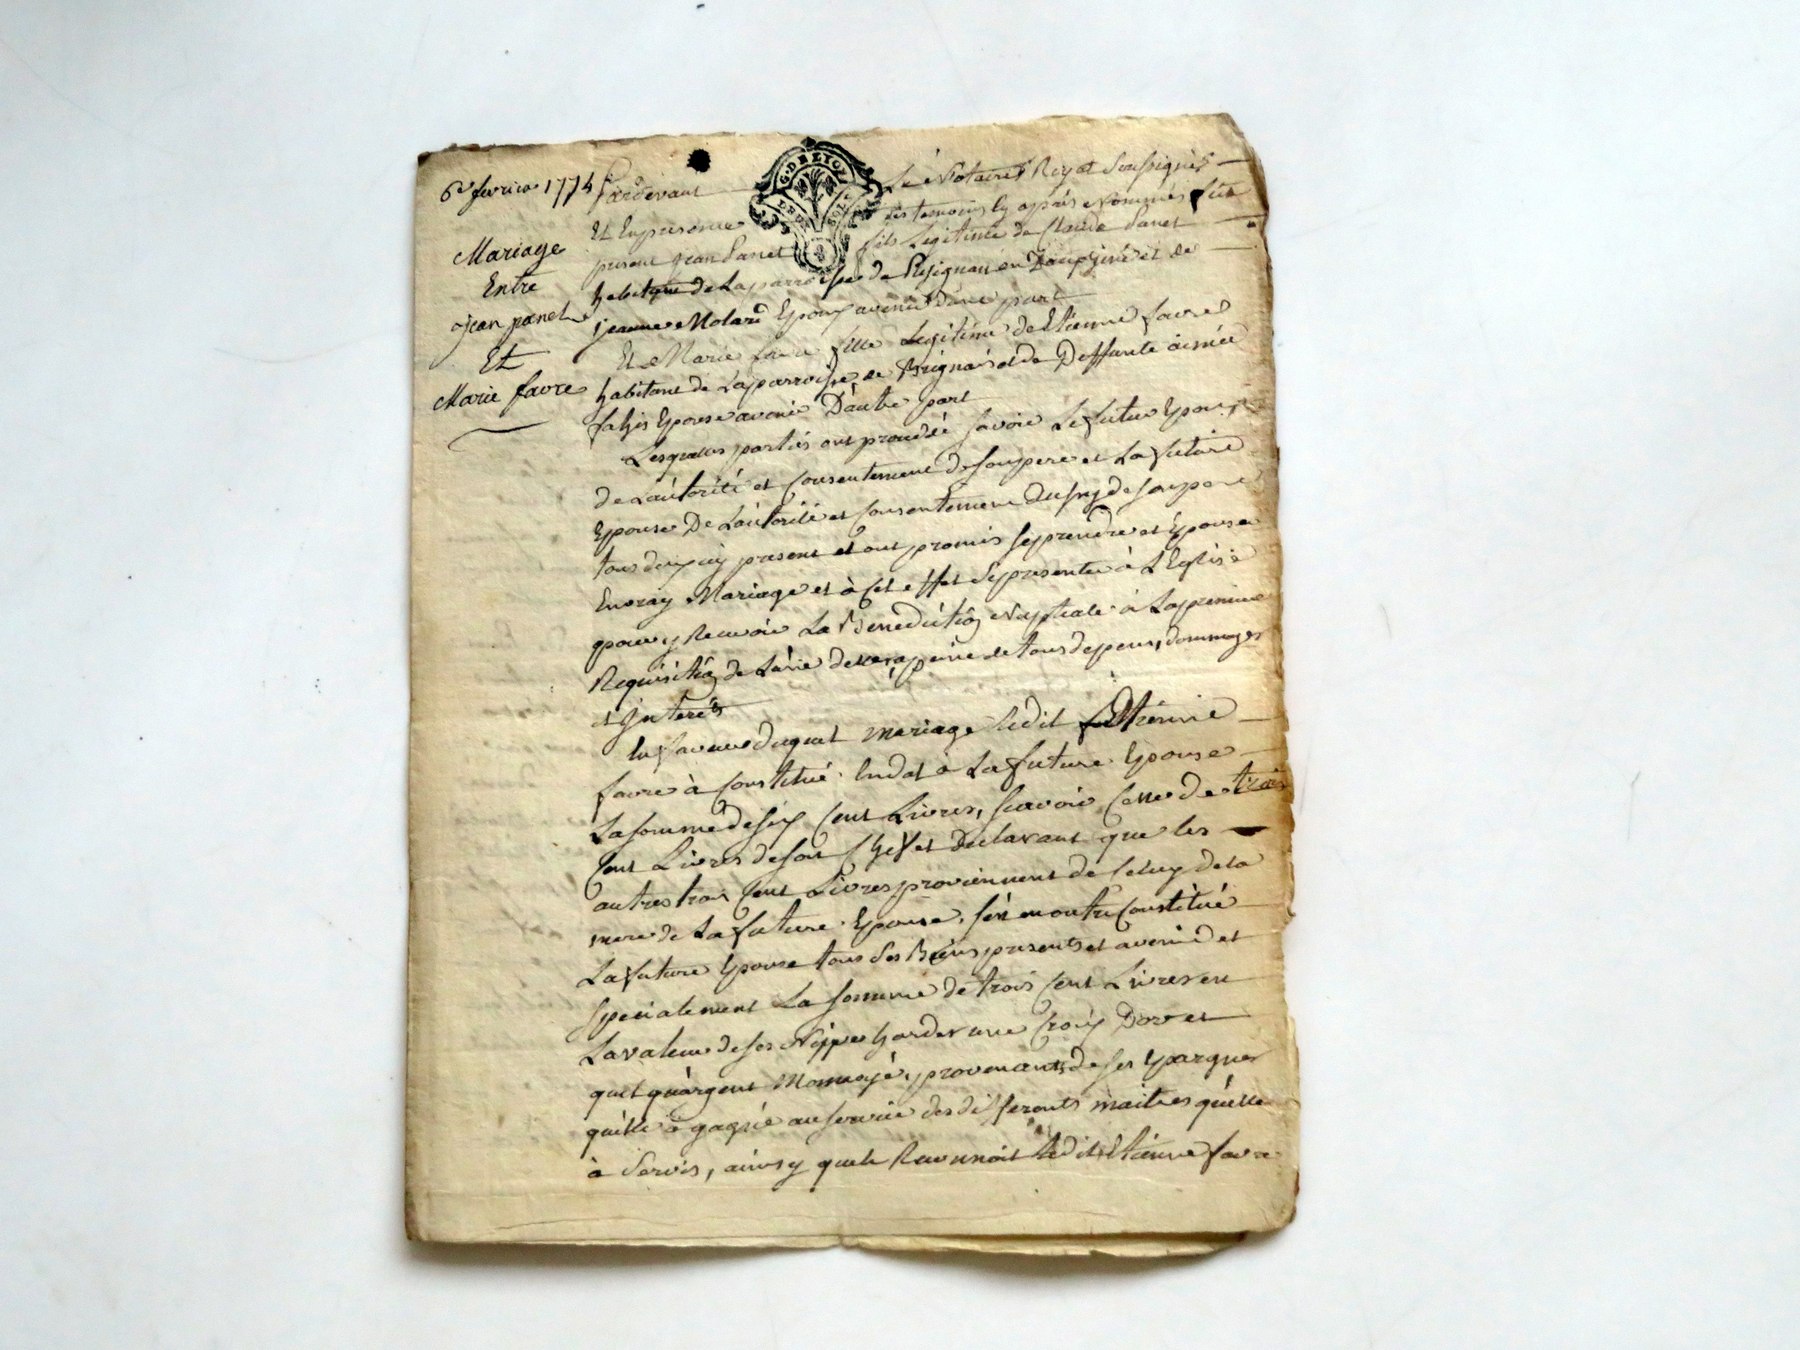 6e fevrier 1774
Mariage
Entre
jean panet
Et
Marie favre
G. DE LYON
DEUX SOLS
Pardevant Le Notaire Royal Soussignés
Et En presence des temoins Cy après Nommés fut
present jean Panet fils Legitime de Claude Panet
habitant de La parroisse de Pusignan en Dauphiné et de
jeanne Molard Epoux avenir D'une part
Et Marie favre fille Legitime de Etienne favre
habitant de La parroisse de Brignais et de Deffunte aimée
Epouse avenir D'autre part
Lesquelles parties ont procedé savoir Le futur Epoux
de L'autorité et Consentement de son pere et La future
Epouse De L'autorité et Consentement dusy de son pere
tous deux icy present et ont promis se prendre et Epouser
En vray Mariage et à Cet effet se presenter à L'Eglise
pour y Recevoir La Benediction Nuptiale à La premiere
Requisition de L'une d'elles, a peine de tous depens, dommages
et Interêts
En faveur duquel mariage ledit Etienne
favre à Constitué En dot à La future Epouse
La somme de six Cent Livres, scavoir Celle de trois
Cent Livres de son Chef et Declarant que les
autres trois Cent Livres proviennent de Celuy de la
mere de La future Epouse, s'est en outre Constitué
La future Epouse tous ses Biens presents et avenir et
specialement La somme de trois Cent Livres en
La valeur de ses Nippes hardes une Croix D'or et
quet qu'argent Monnoyé, provenants de ses Epargnes
qu'elle à gagné au service des differents maitres qu'elle
à servis, ainsy que le Reconnoit ledit Etienne favre